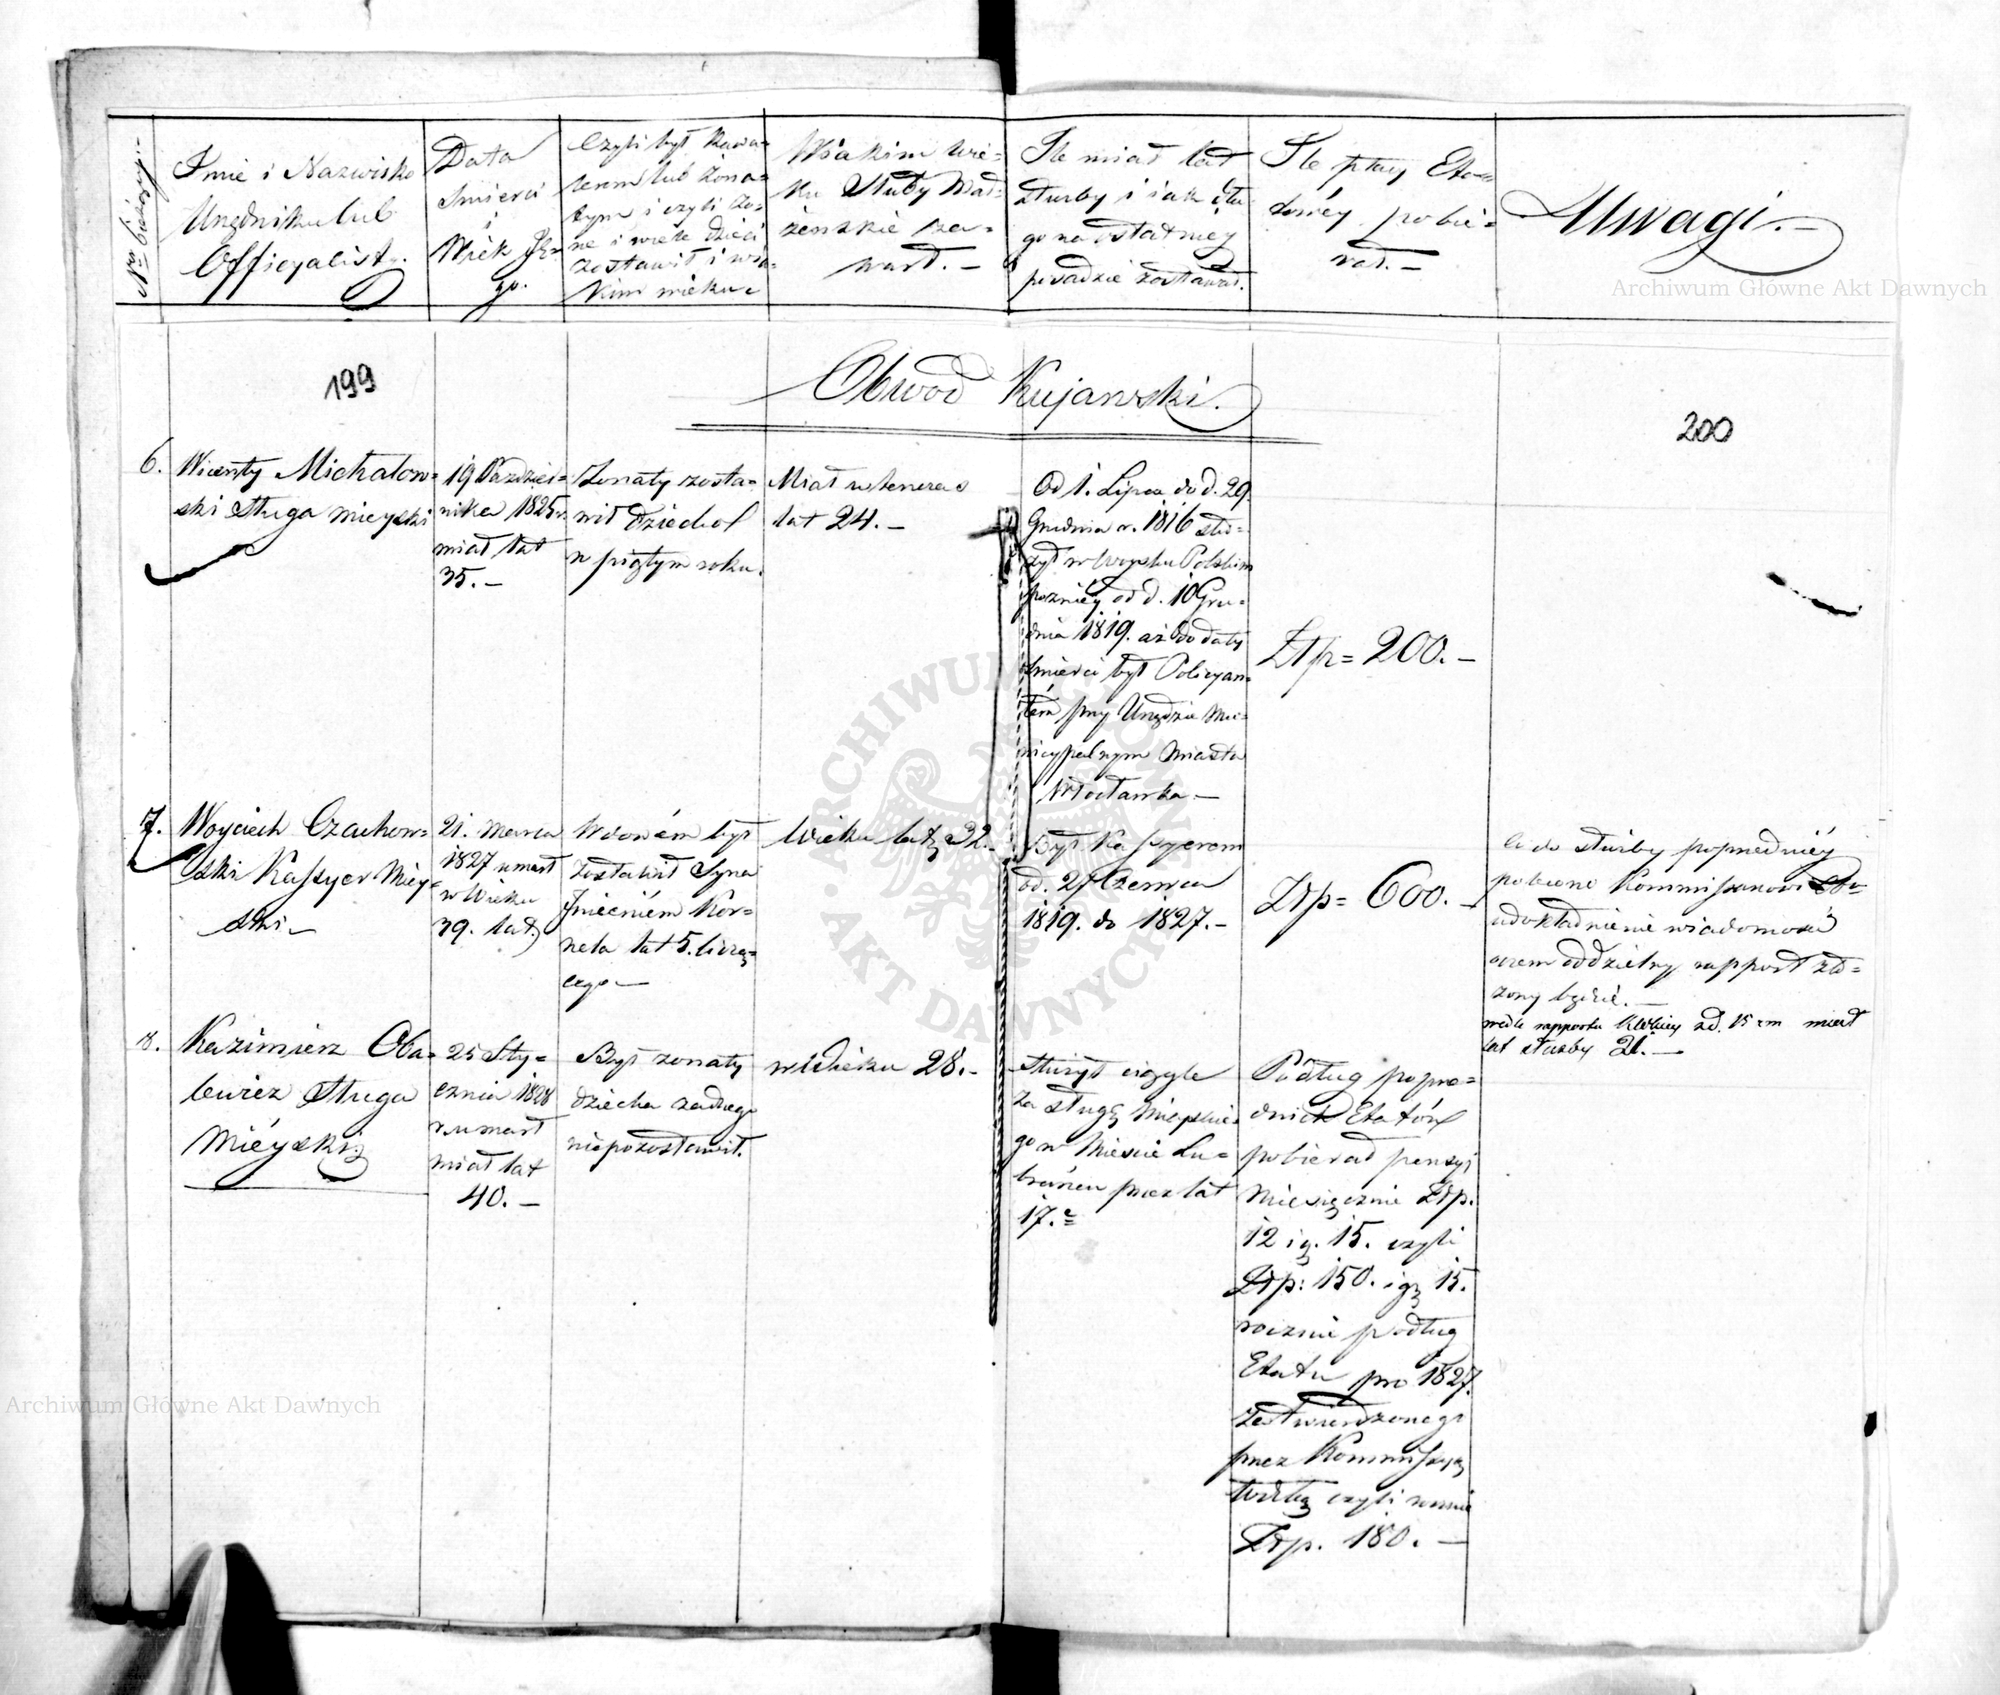 Nr bieżący.
Imie i Nazwisko
Urzędnika lub
Officyalisty.
Data
Śmierci
i
Wiek Je=
go.
Czyli był Kawa=
lerem lub żona=
tym i czyli żo=
nę i wiele dzieci
zostawił i w ia=
kim wieku.
W iakim wie=
ku Śluby Mał=
żeńskie za=
warł.-
Ile miał lat
służby i iak dłu
go na ostatniéy
posadzie zostawał.
Ile płacy Eta=
towéy pobie=
rał.-
Uwagi.-
199
Obwód Kujawski.
200
6.
Wicenty Michalow=
ski Sługa mieyski
19 Paździer=
nika 1825 r.
miał lat
35.-
Żonaty zosta=
wił Dziecko 1
w piątym roku.
Miał w tenczas
lat 24.-
Od 1. Lipca do d. 29
Grudnia r. 1816 słu=
żył w Woysku Polskim
pozniéy od d. 10 Gru=
dnia 1819. aż do daty
śmierci był Policyan=
tem przy Urzędzie Mu=
nicypalnym Miasta
Włocławka.-
Złp= 200.-
7.
Woyciech Czachow=
ski Kassyer Miey=
ski.-
21. Marca
1827 umarł
w Wieku
39. lat.
Wdowcem był
zostawił Syna
Imieniem Kor=
nela lat 5. liczą=
cego.-
Wieku lat 32.-
Był Kassyerem
od. 27 Czerwca
1819. do 1827.-
Złp= 600.-
Co do służby poprzedniéy
polecono Kommissarzowi Obw
udokładnienie wiadomości
oczem oddzielny rapport zło=
żony będzie.-
wedle rapportu zd. 15 rm miał
lat służby 21.-
8.
Kazimierz Oba=
lewicz Sługa
Miéyski
25 Sty=
cznia 1828
r. umarł
miał lat
40.-
Był zonaty
dziecka żadnego
niepozostawił.
w Wieku 28.-
Służył ciągle
za sługę Mieyskie=
go w Mieście Lu=
brańcu przez lat
17.=
Podług poprze=
dnich Etatów
pobierał pensyi
Miesięcznie Złp.
12 i g. 15. czyli
Złp: 150. i g. 15.
rocznie podług
Etatu pro 1827.
zatwierdzonego
przez Kommissyą
Złp. 180.-
ARCHIWUM GŁÓWNE AKT DAWNYCH
Archiwum Główne Akt Dawnych
Archiwum Główne Akt Dawnych